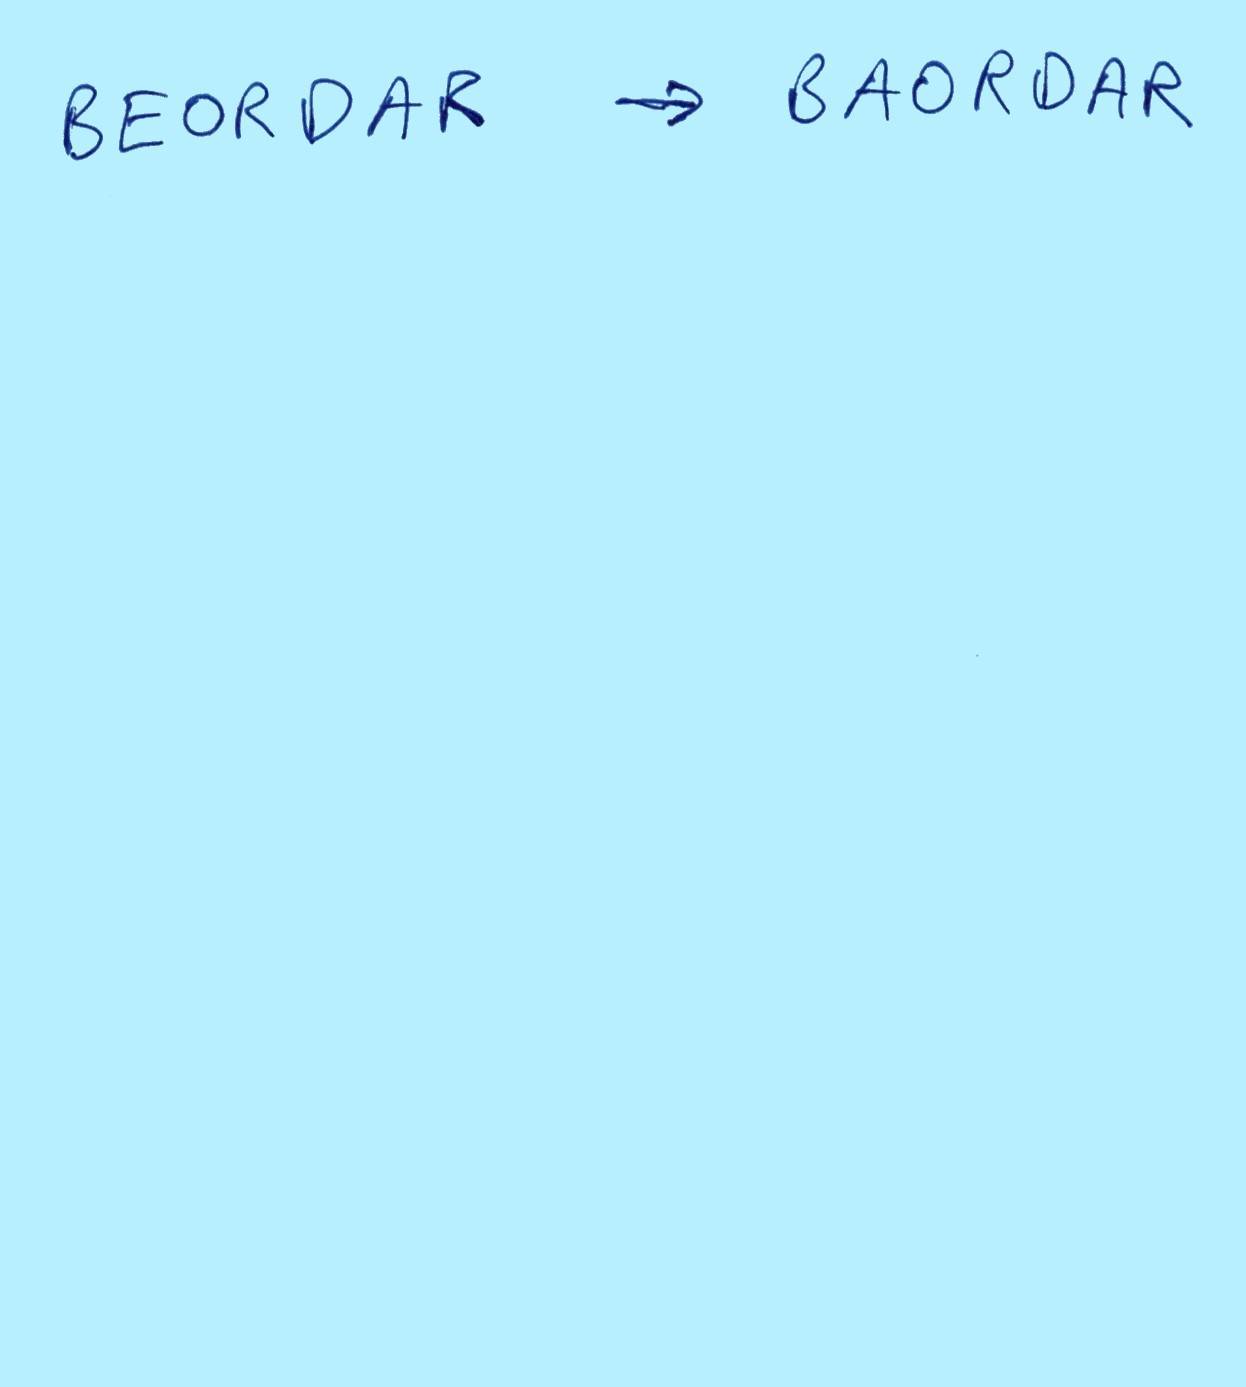 BEORDAR → BAORDAR